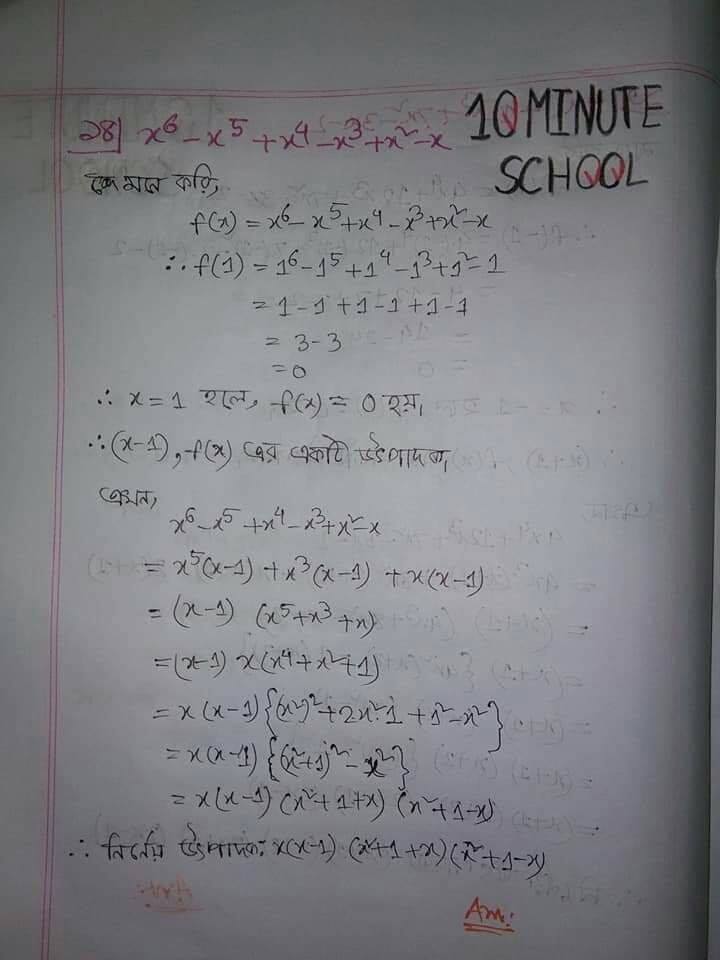 ২৪| x⁶ - x⁵ + x⁴ - x³ + x² - x
10 MINUTE
SCHOOL
মনে করি,
f(x) = x⁶ - x⁵ + x⁴ - x³ + x² - x
∴ f(1) = 1⁶ - 1⁵ + 1⁴ - 1³ + 1² - 1
= 1 - 1 + 1 - 1 + 1 - 1
= 3 - 3
= 0
∴ x = 1 হলে, f(x) = 0 হয়।
∴ (x-1), f(x) এর একটি উৎপাদক,
এখন,
x⁶ - x⁵ + x⁴ - x³ + x² - x
= x⁵(x-1) + x³(x-1) + x(x-1)
= (x-1) (x⁵ + x³ + x)
= (x-1) x(x⁴ + x² + 1)
= x(x-1) {(x²)² + 2x²·1 + 1² - x²}
= x(x-1) {(x²+1)² - x²}
= x(x-1) (x²+1+x) (x²+1-x)
∴ নির্নেয় উৎপাদক: x(x-1) (x²+1+x) (x²+1-x)
Ans: